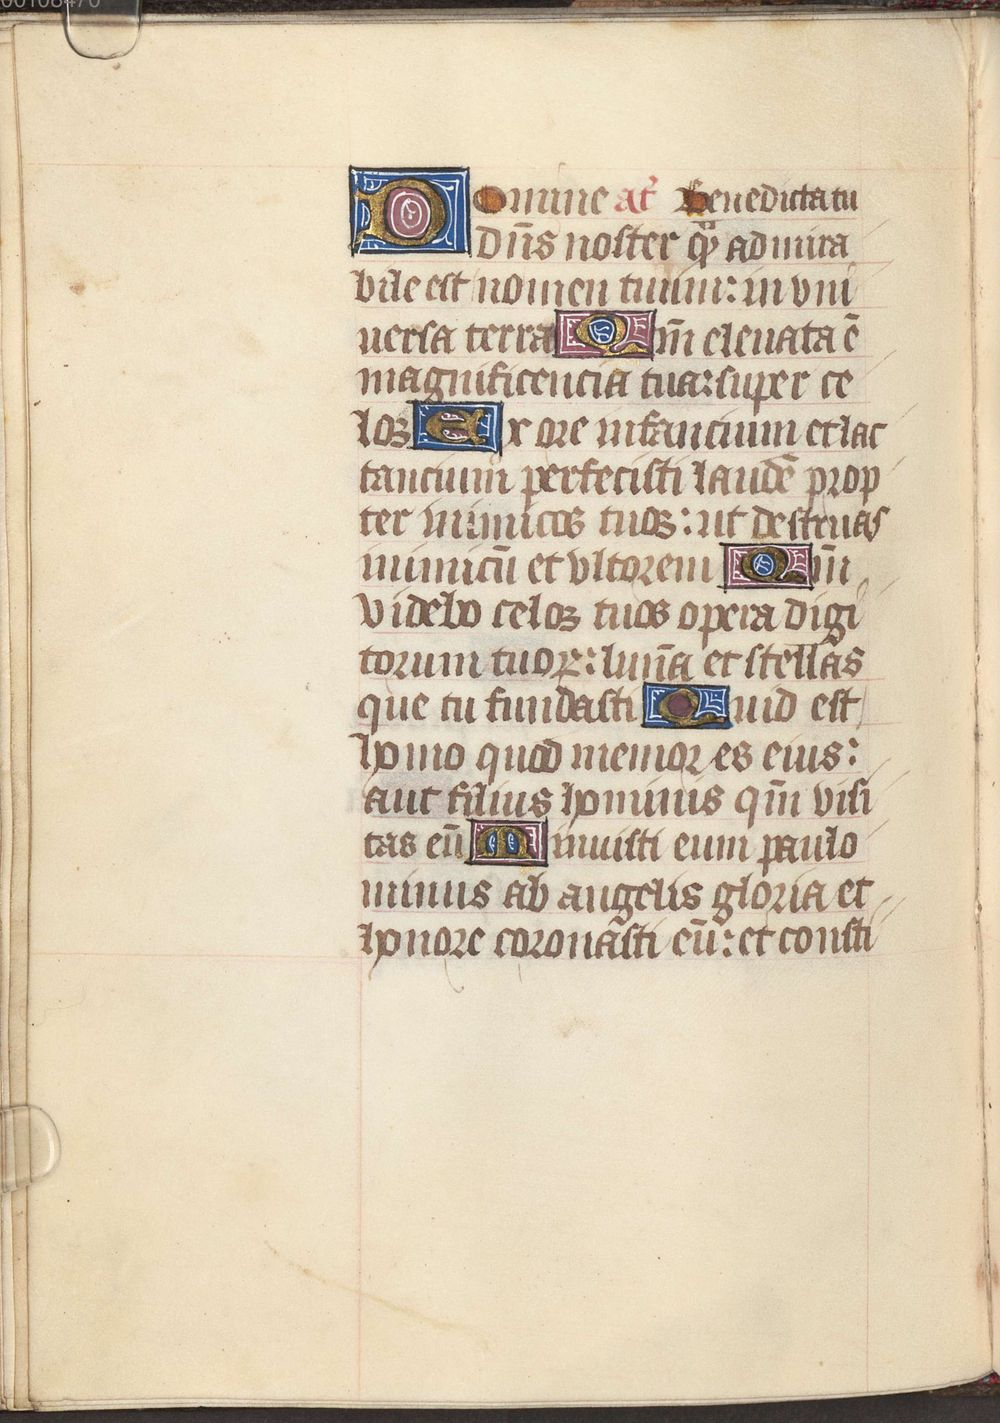 00108470
Domine at̃ Benedicta tu
Dñs noster q̃ admira
bile est nomen tuum: in vni
uersa terra Qm̃ eleuata ē
magnificencia tua: super ce
los Ex ore infancium et lac
tancium perfecisti laudē prop
ter inimicos tuos: ut destruas
inimicū et vltorem Qm̃
videbo celos tuos opera digi
torum tuoꝝ: lunã et stellas
que tu fundasti Quid est
homo quod memor es eius:
aut filius hominis qm̃ visi
tas eū Minuisti eum paulo
minus ab angelis gloria et
honore coronasti eū: et consti